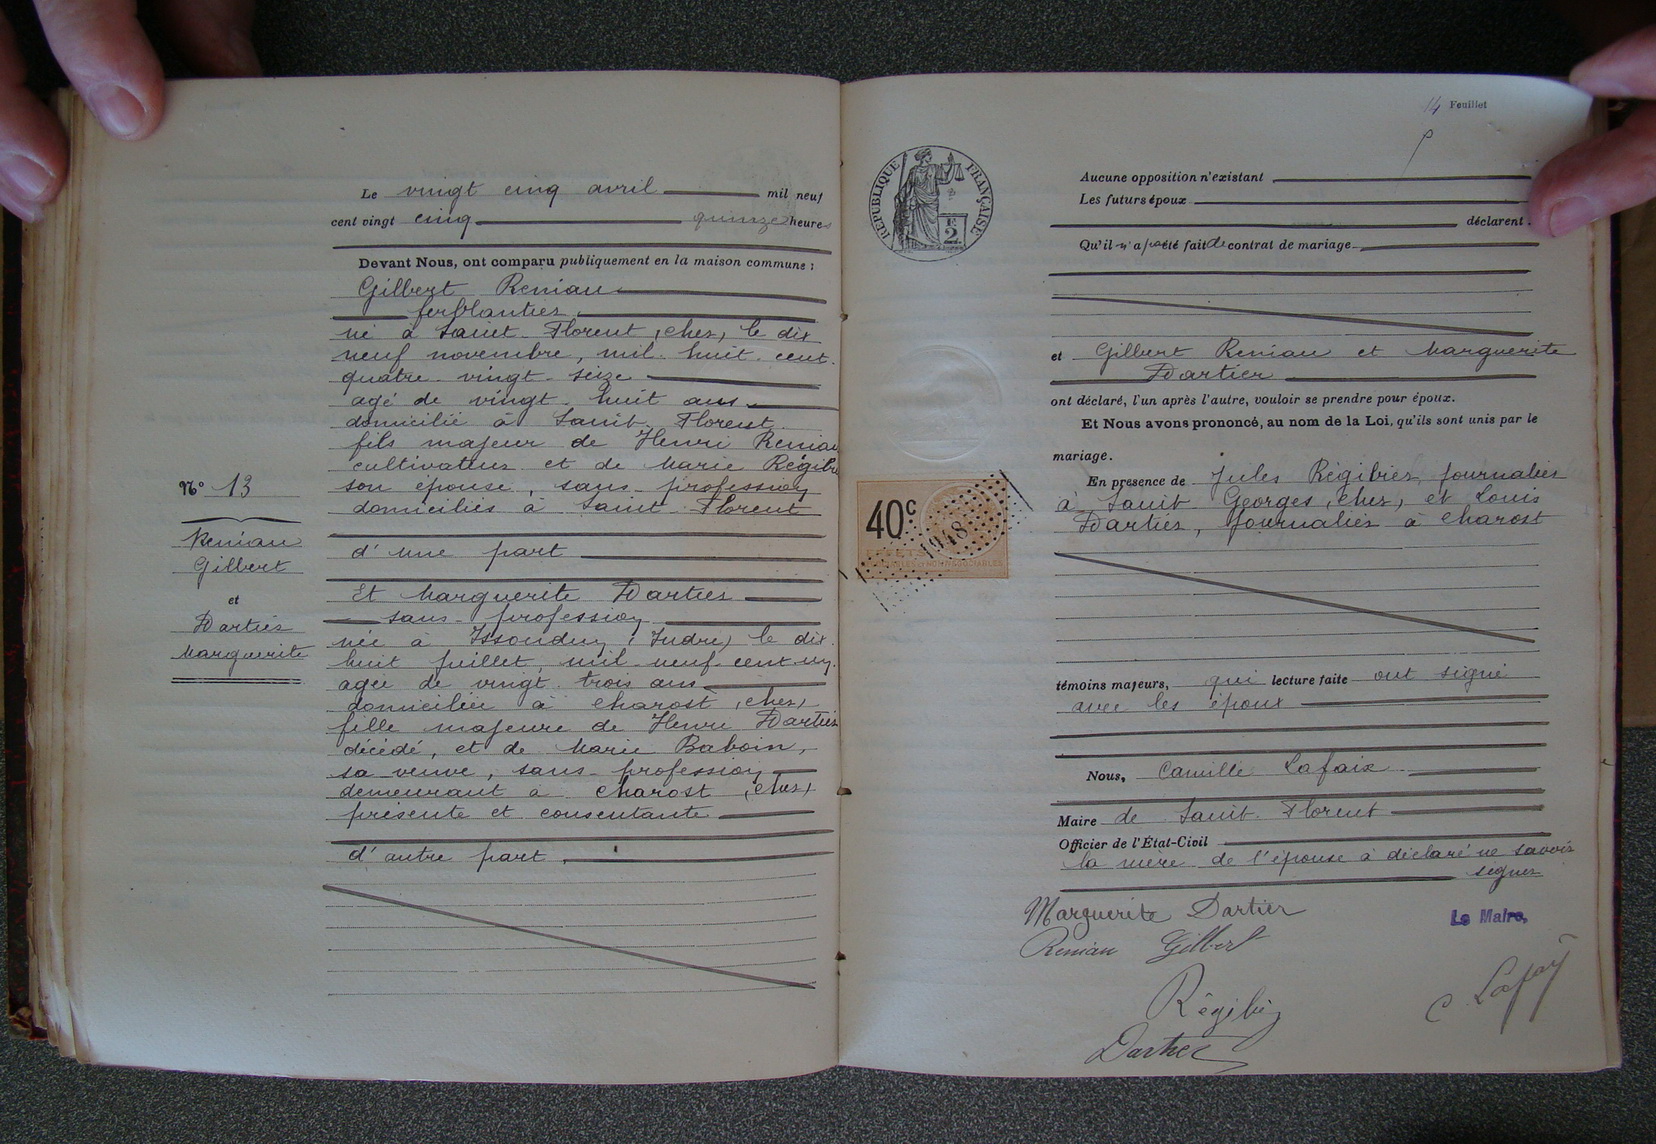 Le vingt cinq avril mil neuf
cent vingt cinq quinze heures
Devant Nous, ont comparu publiquement en la maison commune :
Gilbert Reniau
ferblantier
né à Saint-Florent (cher) le dix
neuf novembre, mil-huit-cent-
quatre-vingt-seize
agé de vingt-huit ans
domicilié à Saint-Florent
fils majeur de Henri Reniau
cultivateur et de Marie Régibier
son épouse, sans-profession
domiciliés à Saint-Florent
d'une part
Et Marguerite Dartier
sans-profession
née à Issoudun (Indre) le dix-
huit juillet, mil-neuf-cent-un
agée de vingt-trois ans
domiciliée à charost (cher)
fille majeure de Henri Dartier
décédé, et de Marie Baboin,
sa veuve, sans-profession
demeurant à charost (cher)
présente et consentante
d'autre part.
N° 13
Reniau
Gilbert
et
Dartier
Marguerite
14 Feuillet
RÉPUBLIQUE FRANÇAISE
2
40c
1948
Aucune opposition n'existant
Les futurs époux
déclarent
Qu'il n'a pas été fait de contrat de mariage
et Gilbert Reniau et Marguerite
Dartier
ont déclaré, l'un après l'autre, vouloir se prendre pour époux.
Et Nous avons prononcé, au nom de la Loi, qu'ils sont unis par le
mariage.
En presence de Jules Régibier, journalier
à Saint-Georges (cher) et Louis
Dartier, journalier à charost
témoins majeurs, qui lecture faite ont signé
avec les époux
Nous, Camille Lafaix
Maire de Saint-Florent
Officier de l'État-Civil
la mère de l'épouse à déclaré ne savoir
signer
Marguerite Dartier
Le Maire,
Reniau Gilbert
C Lafaix
Régibier
Dartier